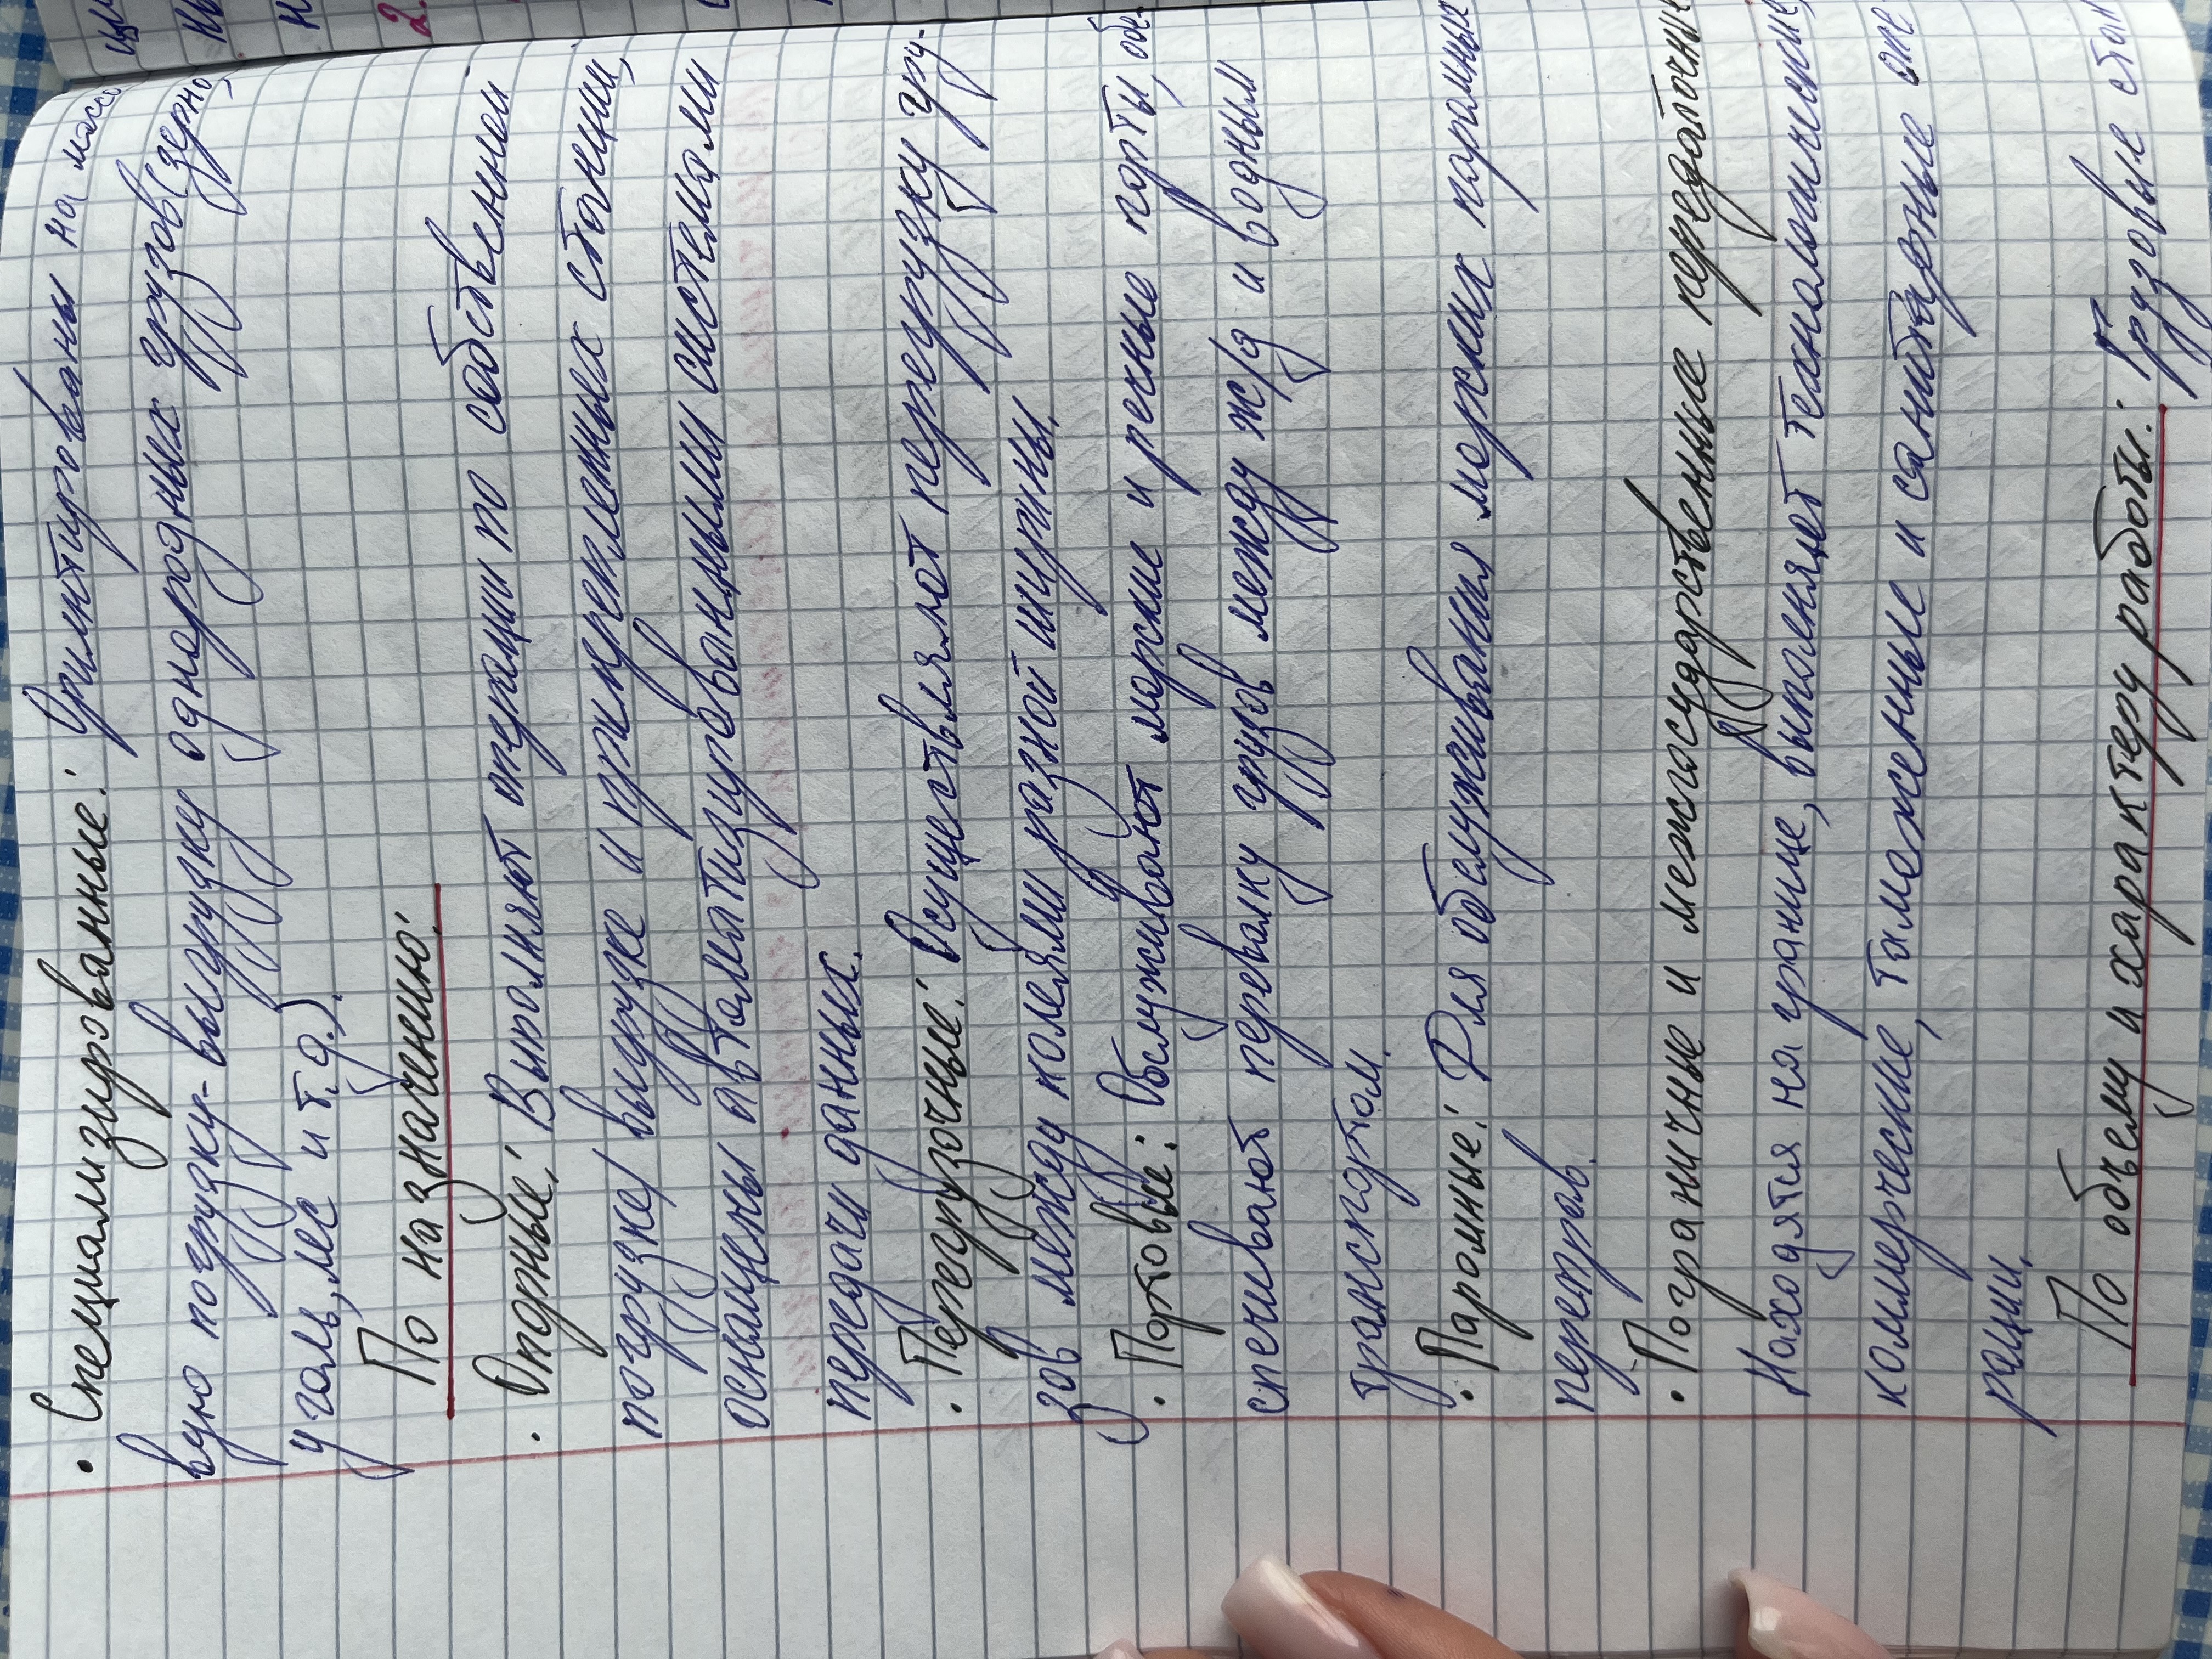 • Специализированные: Ориентированы на массо
вую погрузку-выгрузку однородных грузов (зерно,
уголь, лес и т.д.).
По назначению:
• Опорные: Выполняют операции по собственной
погрузке/выгрузке и прикрепленных станции,
оснащены автоматизированными системами
передачи данных.
• Перегрузочные: Осуществляют перегрузку гру-
зов между колеями разной ширины.
• Портовые: Обслуживают морские и речные порты, обе-
спечивают перевалку грузов между ж/д и водным
транспортом.
• Паромные: Для обслуживания морских паромных
переправ.
• Пограничные и межгосударственные передаточные
Находятся на границе, выполняет технологические,
коммерческие, таможенные и санитарные опе
рации.
По объему и характеру работы: Грузовые стан
2.